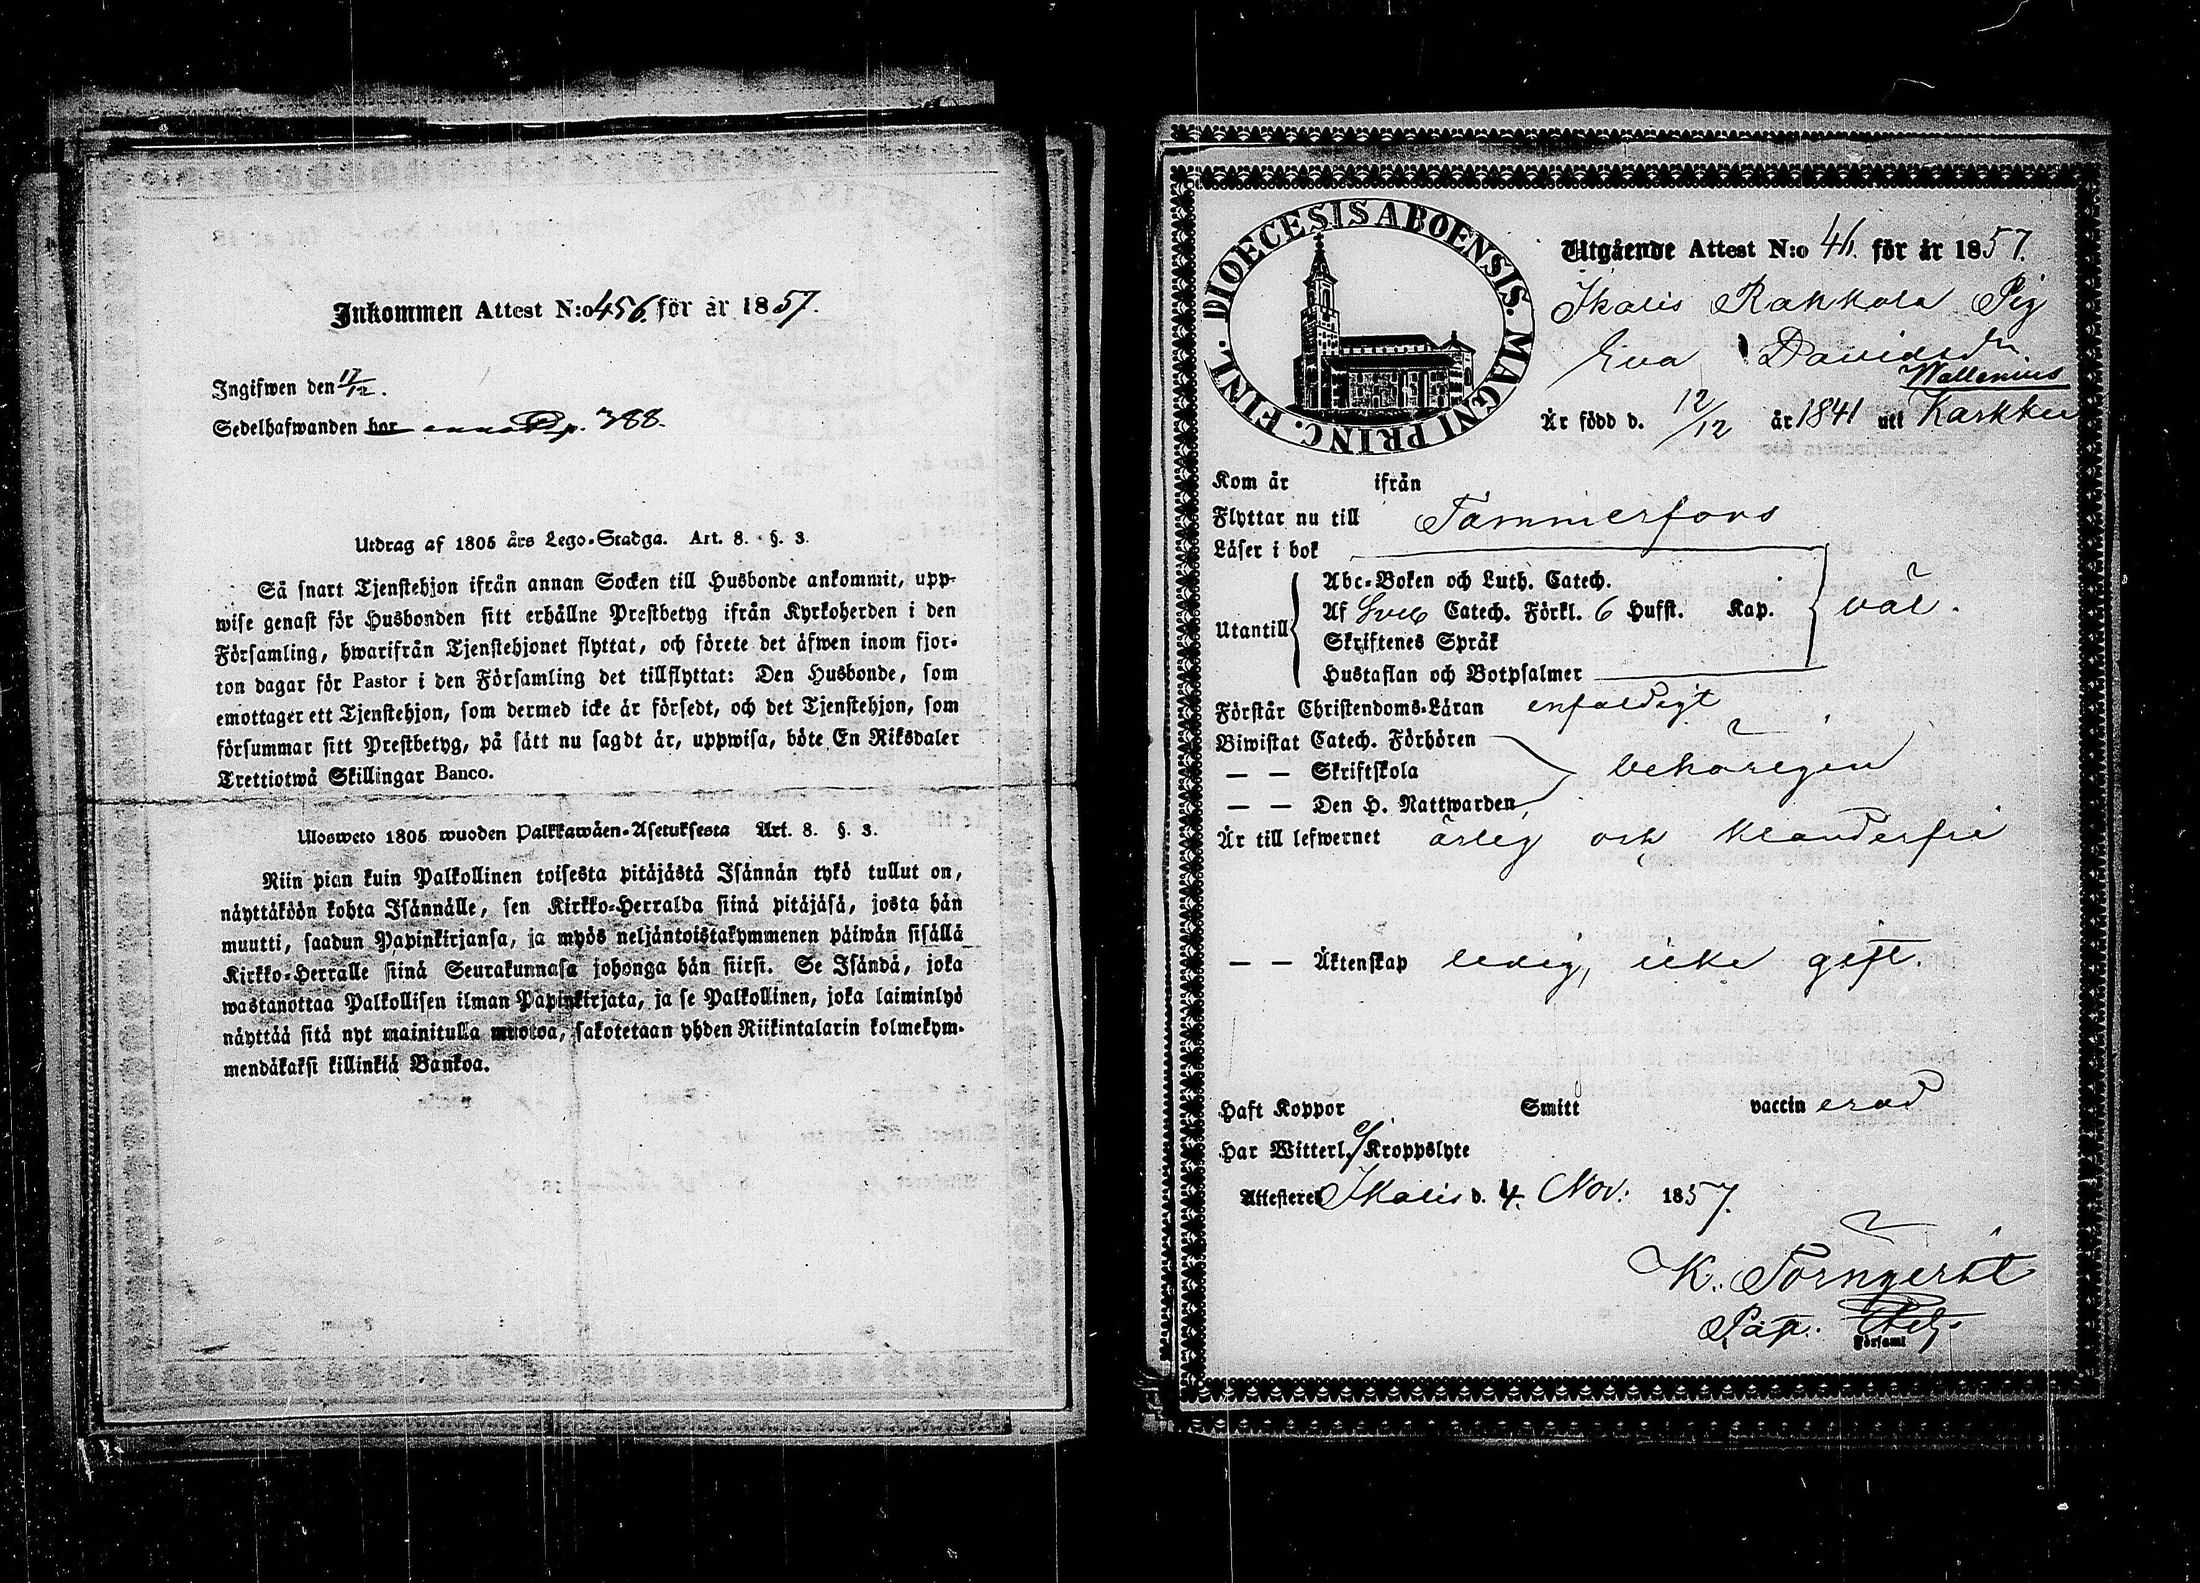 Inkommen Attest N:o 456. för år 1857.
Ingifwen den 17/12.
Sedelhafwanden bor p. 388.
Utdrag af 1805 års Lego-Stadga. Art. 8. §. 3.
Så snart Tjenstehjon ifrån annan Socken till Husbonde ankommit, upp-
wise genast för Husbonden sitt erhållne Prestbetyg ifrån Kyrkoherden i den
Församling, hwarifrån Tjenstehjonet flyttat, och förete det äfwen inom fjor-
ton dagar för Pastor i den Församling det tillflyttat: Den Husbonde, som
emottager ett Tjenstehjon, som dermed icke är försedt, och det Tjenstehjon, som
försummar sitt Prestbetyg, på sätt nu sagdt är, uppwisa, böte En Riksdaler
Trettiotwå Skillingar Banco.
Ulosweto 1805 wuoden Palkkawäen-Asetuksesta Art. 8. §. 3.
Niin pian kuin Palkollinen toisesta pitäjästä Isännän tykö tullut on,
näyttäköön kohta Isännälle, sen Kirkko-Herralda siinä pitäjäsä, josta hän
muutti, saadun Papinkirjansa, ja myös neljäntoistakymmenen päiwän sisällä
Kirkko-Herralle siinä Seurakunnasa johonga hän siirsi. Se Isändä, joka
wastanottaa Palkollisen ilman Papinkirjata, ja se Palkollinen, joka laiminlyö
näyttää sitä nyt mainitulla muotoa, sakotetaan yhden Riikintalarin kolmekym-
mendäkaksi killinkiä Bankoa.
DIOECESIS ABOENSIS. MAGNI PRINC. FINL.
Utgående Attest N:o 46. för år 1857.
Ikalis Rahkola Pig
Eva Davidsdr.
Wallenius
Är född d. 12/12 år 1841 uti Karkku
Kom år ifrån
Flyttar nu till Tammerfors
Läser i bok
Abc-Boken och Luth. Catech.
Utantill Af Sveb Catech. Förkl. 6 Hufst. Kap. väl.
Skriftenes Språk
Hustaflan och Botpsalmer
Förstår Christendoms-Läran enfaldigt
Biwistat Catech. Förhören
— — Skriftskola behörigen
— — Den H. Nattwarden
Är till lefwernet ärlig och klanderfri
— — Äktenskap ledig, icke gift.
Haft Koppor Smitt vaccin erad
Har Witterl. Kroppslyte
Attesteras Ikalis d. 4. Nov: 1857.
K. Törnqvist
Församl